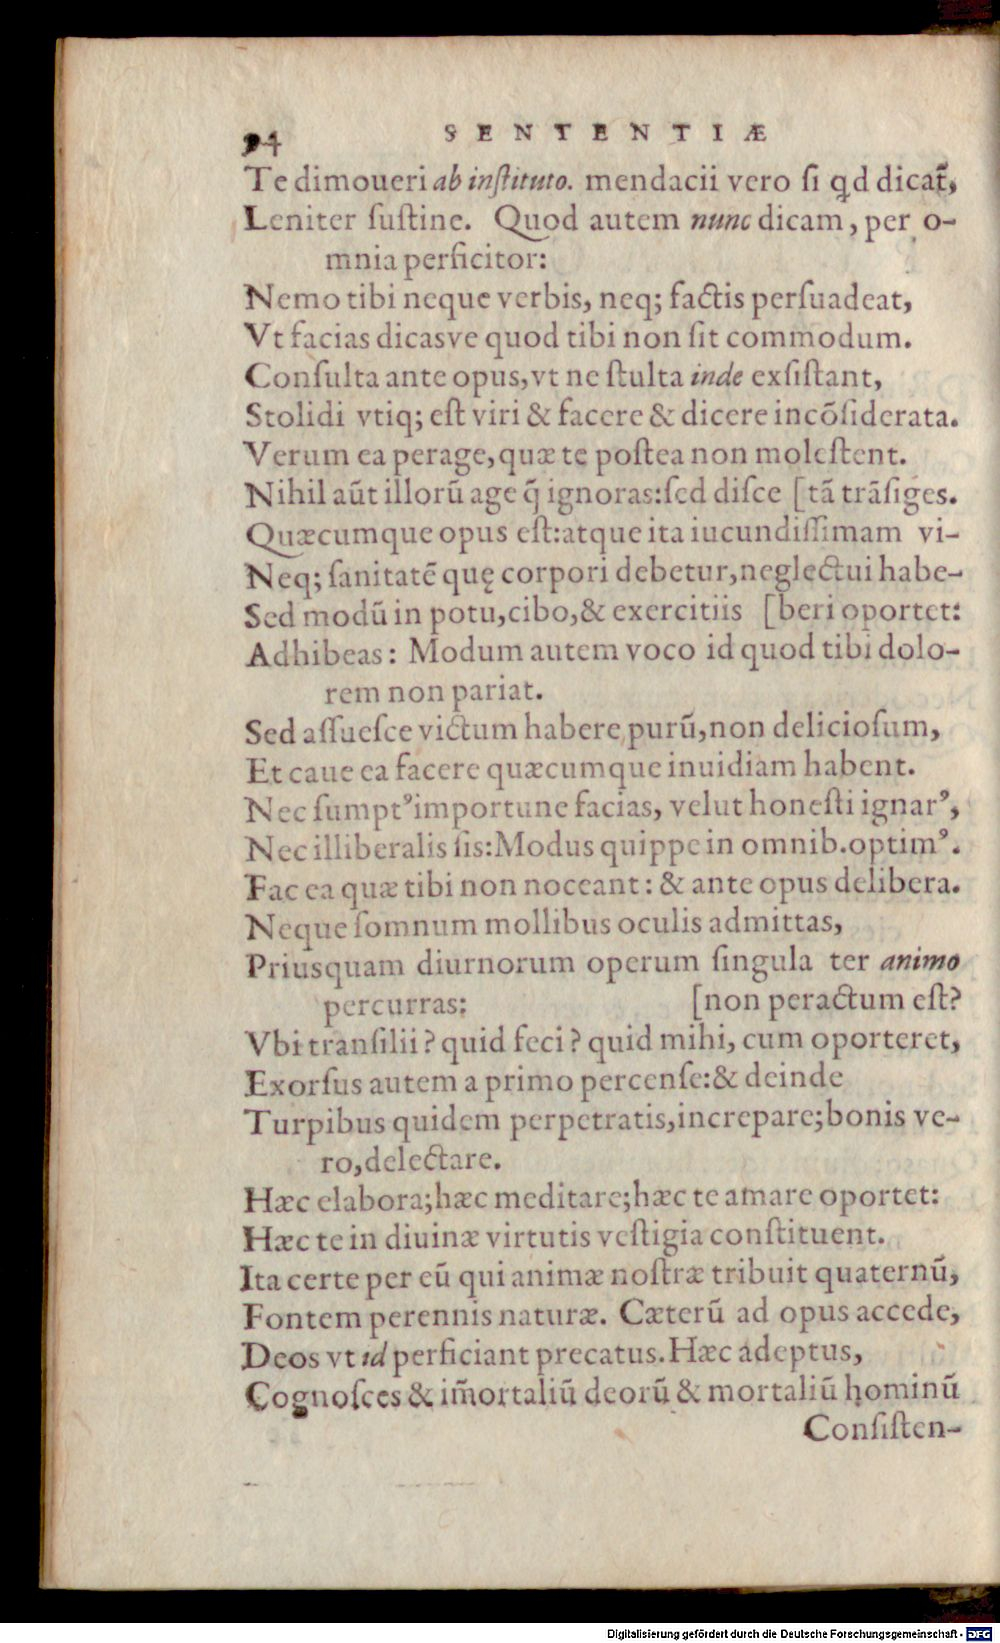 94 SENTENTIÆ
Te dimoueri ab inſtituto. mendacii vero ſi qd dicat̃,
Leniter ſuſtine. Quod autem nunc dicam, per o-
mnia perficitor:
Nemo tibi neque verbis, neq; factis perſuadeat,
Vt facias dicasve quod tibi non ſit commodum.
Conſulta ante opus, vt ne ſtulta inde exſiſtant,
Stolidi vtiq; eſt viri & facere & dicere incõſiderata.
Verum ea perage, quæ te poſtea non moleſtent.
Nihil aũt illorũ age q̃ ignoras: ſed diſce [tã trãſiges.
Quæcumque opus eſt: atque ita iucundiſſimam vi-
Neq; ſanitatẽ quę corpori debetur, neglectui habe-
Sed modũ in potu, cibo, & exercitiis [beri oportet:
Adhibeas: Modum autem voco id quod tibi dolo-
rem non pariat.
Sed aſſueſce victum habere purũ, non delicioſum,
Et caue ea facere quæcumque inuidiam habent.
Nec ſumptꝰ importune facias, velut honeſti ignarꝰ,
Nec illiberalis ſis: Modus quippe in omnib. optimꝰ.
Fac ea quæ tibi non noceant: & ante opus delibera.
Neque ſomnum mollibus oculis admittas,
Priusquam diurnorum operum ſingula ter animo
percurras: [non peractum eſt?
Vbi tranſilii? quid feci? quid mihi, cum oporteret,
Exorſus autem a primo percenſe: & deinde
Turpibus quidem perpetratis, increpare; bonis ve-
ro, delectare.
Hæc elabora; hæc meditare; hæc te amare oportet:
Hæc te in diuinæ virtutis veſtigia conſtituent.
Ita certe per eũ qui animæ noſtræ tribuit quaternũ,
Fontem perennis naturæ. Cæterũ ad opus accede,
Deos vt id perficiant precatus. Hæc adeptus,
Cognoſces & im̃ortaliũ deorũ & mortaliũ hominũ
Conſiſten-
Digitalisierung gefördert durch die Deutsche Forschungsgemeinschaft - DFG